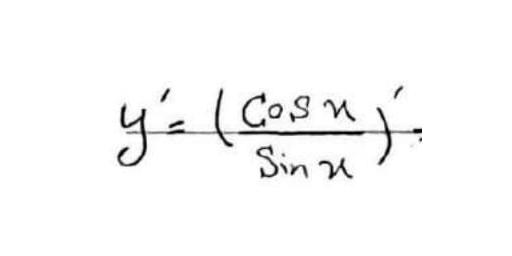 y' = (cos x / sin x)' =